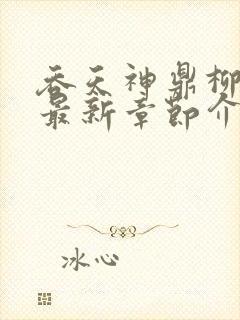 吞天神鼎柳
最新章节介
冰心